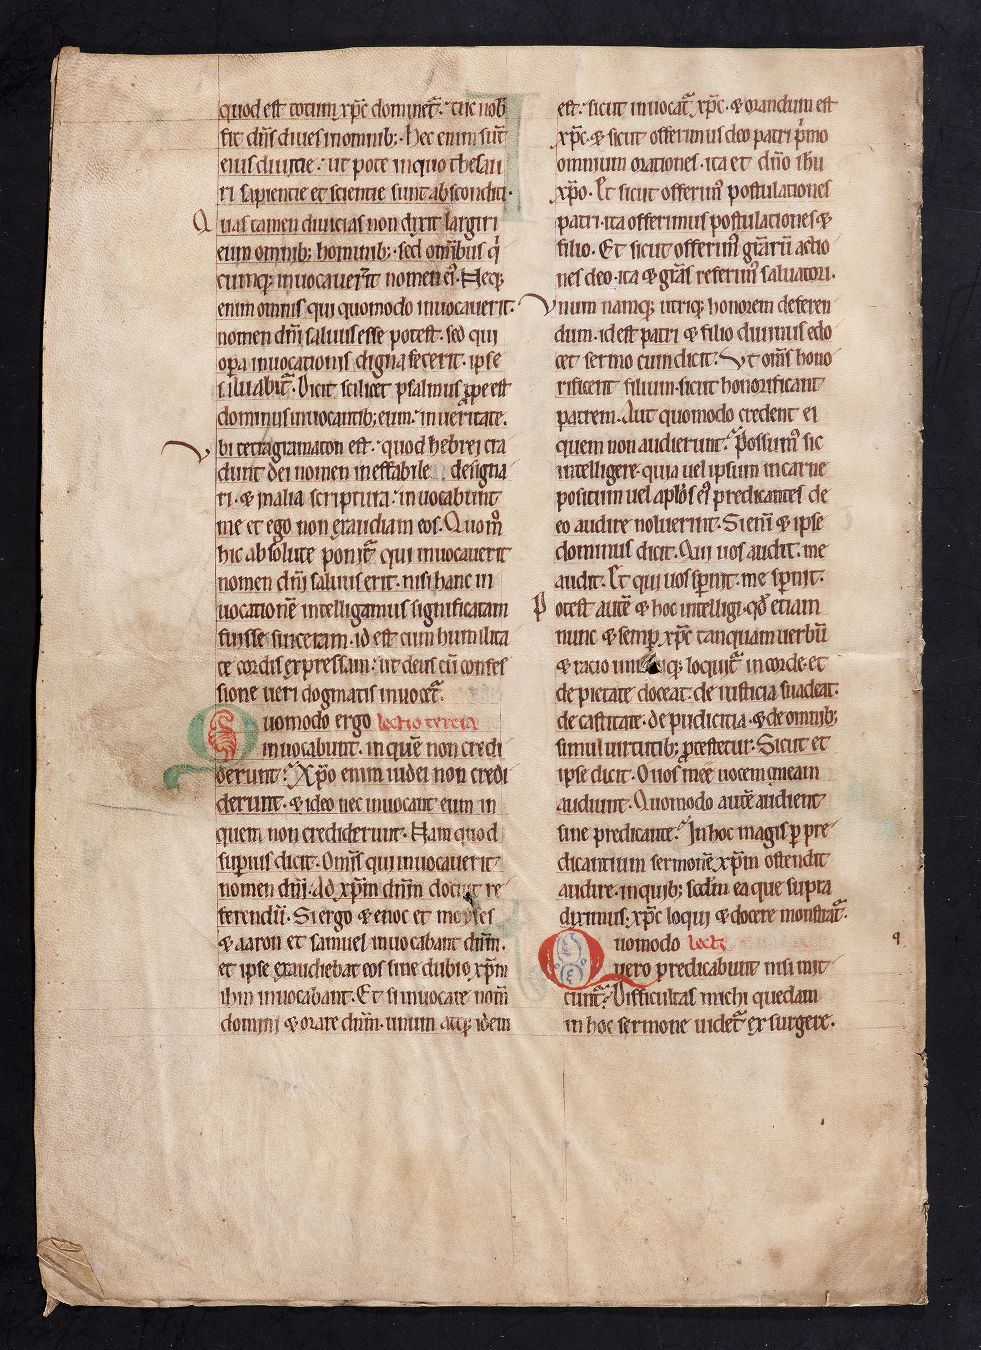 quod est totum xp̄c dominet᷑. tūc nob
fit dn̄s diues in omnib;. Hec enim sūt
eius diuitie. ut pote in quo thesau
ri sapientie et scientie sunt absconditi.
Quas tamen diuicias non dixit largiri
eum omnib; hominib;. sed om̄ibus q
cumq; inuocauer̄it nomen ei᷒. Neq;
enim omnis qui quomodo inuocauerit.
nomen dn̄i saluus esse potest. sed qui
opa inuocationis digna fecerit. ipse
saluabit᷑. Dicit scilicet psalmus ꝓpe est
dominus inuocantib; eum. in ueritate.
Vbi tetragramaton est. quod hebrei tra
dunt dei nomen ineffabile designa
ri. & in alia scriptura. inuocabunt
me et ego non exaudiam eos. Quom̊
hic absolute ponit᷑ qui inuocauerit
nomen dn̄i saluus erit. nisi hanc in
uocationē intelligamus significatam
fuisse sinceram. id est cum humilita
te cordis expressam. ut deus cū confes
sione ueri dogmatis inuocet᷑.
Quomodo ergo lectio tercia
inuocabunt. in quē non credi
derunt. Xp̄o enim iudei non credi
derunt. & ideo nec inuocant eum in
quem non crediderunt. Nam quod
supius dicit. Om̄is qui inuocauerit
nomen dn̄i. Ad xp̄m dn̄m docuit re
ferendū. Si ergo & enoc et moyses
& aaron et samuel inuocabant dn̄m.
et ipse exaudiebat eos sine dubio xp̄m
ih̄m inuocabant. Et si inuocare nom̄
domini & orare dn̄m. unum atq; idem
est. sicut inuocat᷑ xp̄c. & orandum est
xp̄c. & sicut offerimus deo patri p̍mo
omnium orationes. ita et dn̄o ih̄u
xp̄o. Et sicut offerim᷒ postulationes
patri. ita offerimus postulationes &
filio. Et sicut offerim᷒ gr̄arū actio
nes deo. ita & gr̄as referim᷒ saluatori.
Vnum namq; utriq; honorem deferen
dum. id est patri & filio diuinus edo
cet sermo cum dicit. Vt om̄s hono
rificent filium. sicut honorificant
patrem. Aut quomodo credent ei
quem non audierunt. Possum᷒ sic
intelligere. quia uel ipsum in carne
positum uel apl̄os ei᷒ predicantes de
eo audire noluerint. Si eni᷒ & ipse
dominus dicit. Qui uos audit. me
audit. Et qui uos sp̄nit. me sp̄nit.
Potest autē & hoc intelligi. qd̄ etiam
nunc & semp xp̄c tanquam uerbū
& racio loquit᷑ in corde. et
de pietate doceat. de iusticia suadeat.
de castitate. de pudicitia. & de omnib;
simul uirtutib; ꝓtestetur. Sicut et
ipse dicit. Oues mee uocem meam
audiunt. Quomodo autē audient
sine predicante. In hoc magis p pre
dicantium sermonē xp̄m ostendit
audire. in quib; scd̄m ea que supra
diximus. xp̄c loqui & docere monstrat᷑.
Quomodo lectt̄
uero predicabunt nisi mit
tunt᷑. Difficultas michi quedam
in hoc sermone uidet᷑ exsurgere.
9